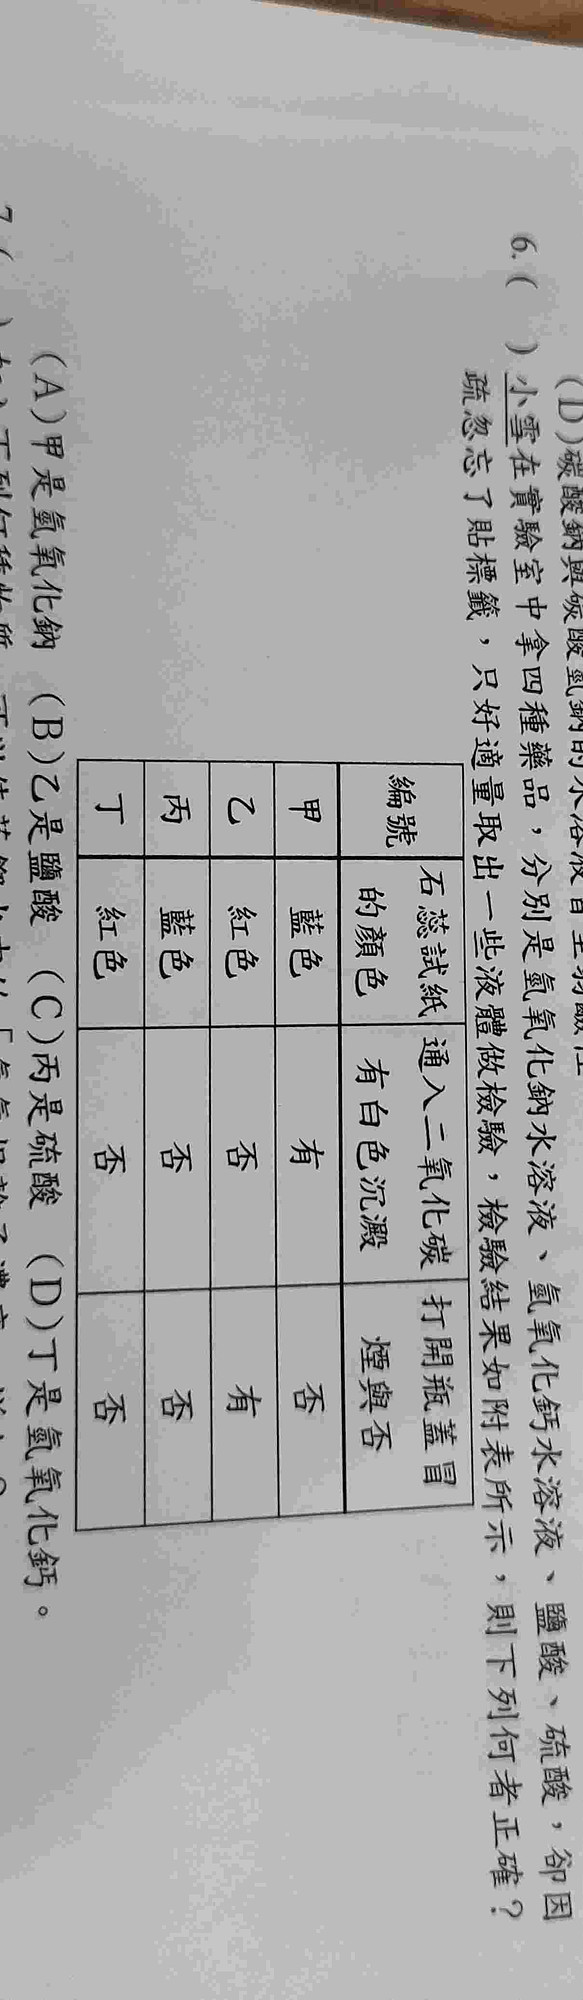 (D)碳酸鈉與碳酸氫鈉的水溶液皆呈弱酸性
6.(　)小雪在實驗室中拿四種藥品，分別是氫氧化鈉水溶液、氫氧化鈣水溶液、鹽酸、硫酸，卻因
疏忽忘了貼標籤，只好適量取出一些液體做檢驗，檢驗結果如附表所示，則下列何者正確？
編號 石蕊試紙的顏色 通入二氧化碳有白色沉澱 打開瓶蓋冒煙與否
甲 藍色 有 否
乙 紅色 否 有
丙 藍色 否 否
丁 紅色 否 否
(A)甲是氫氧化鈉 (B)乙是鹽酸 (C)丙是硫酸 (D)丁是氫氧化鈣。
7.(　)